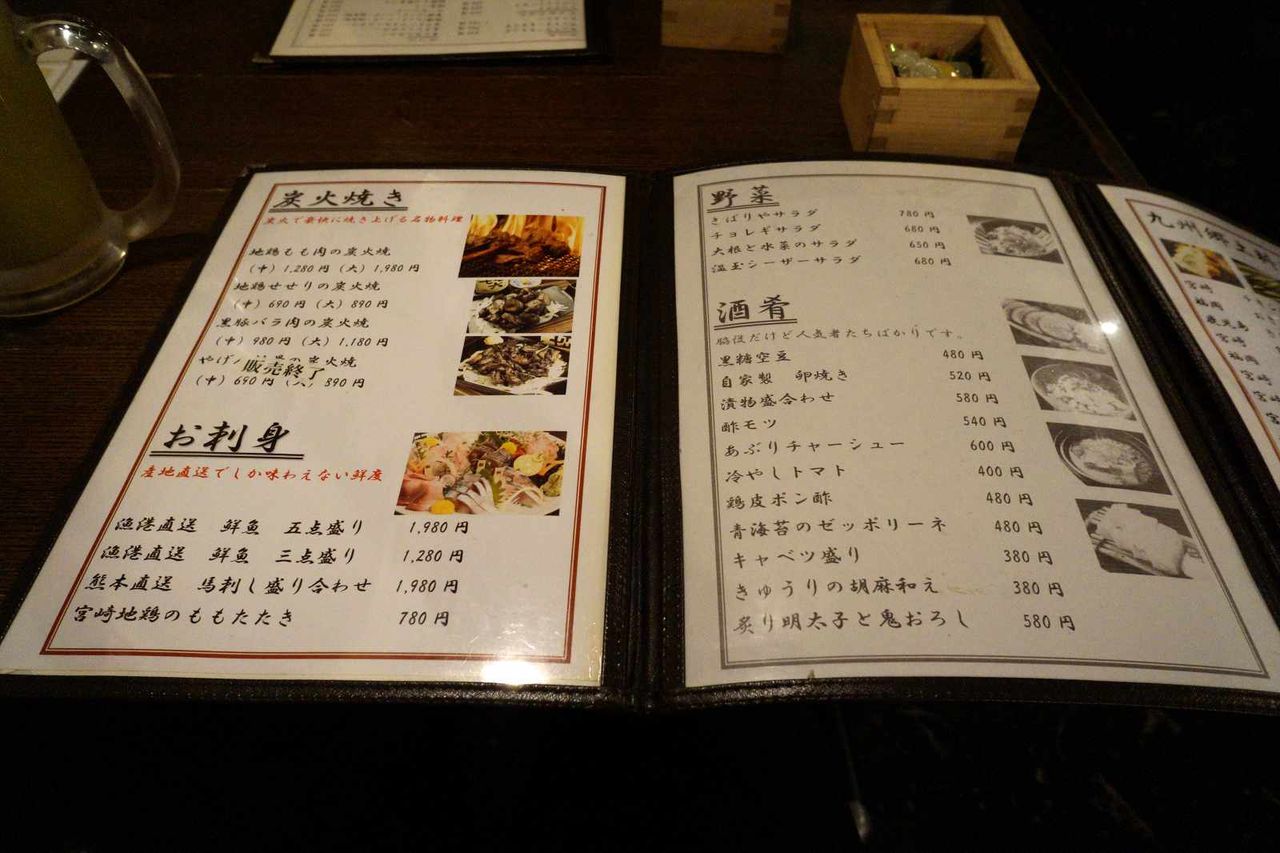 炭火焼き
炭火で豪快に焼き上げる名物料理
地鶏もも肉の炭火焼
(中) 1,280円 (大) 1,980円
地鶏せせりの炭火焼
(中) 690円 (大) 890円
黒豚バラ肉の炭火焼
(中) 980円 (大) 1,180円
やげ 火焼
販売終了
(中) 690円 890円
お刺身
産地直送でしか味わえない鮮度
漁港直送 鮮魚 五点盛り 1,980円
漁港直送 鮮魚 三点盛り 1,280円
熊本直送 馬刺し盛り合わせ 1,980円
宮崎地鶏のももたたき 780円
野菜
さばりやサラダ 780円
チョレギサラダ 680円
大根と水菜のサラダ 650円
温玉シーザーサラダ 680円
酒肴
脇役だけど人気者たちばかりです。
黒糖空豆 480円
自家製 卵焼き 520円
漬物盛合わせ 580円
酢モツ 540円
あぶりチャーシュー 600円
冷やしトマト 400円
鶏皮ポン酢 480円
青海苔のゼッポリーネ 480円
キャベツ盛り 380円
きゅうりの胡麻和え 380円
炙り明太子と鬼おろし 580円
九州郷土
宮崎
福岡
鹿児島
宮崎
福岡
宮崎
宮
宮